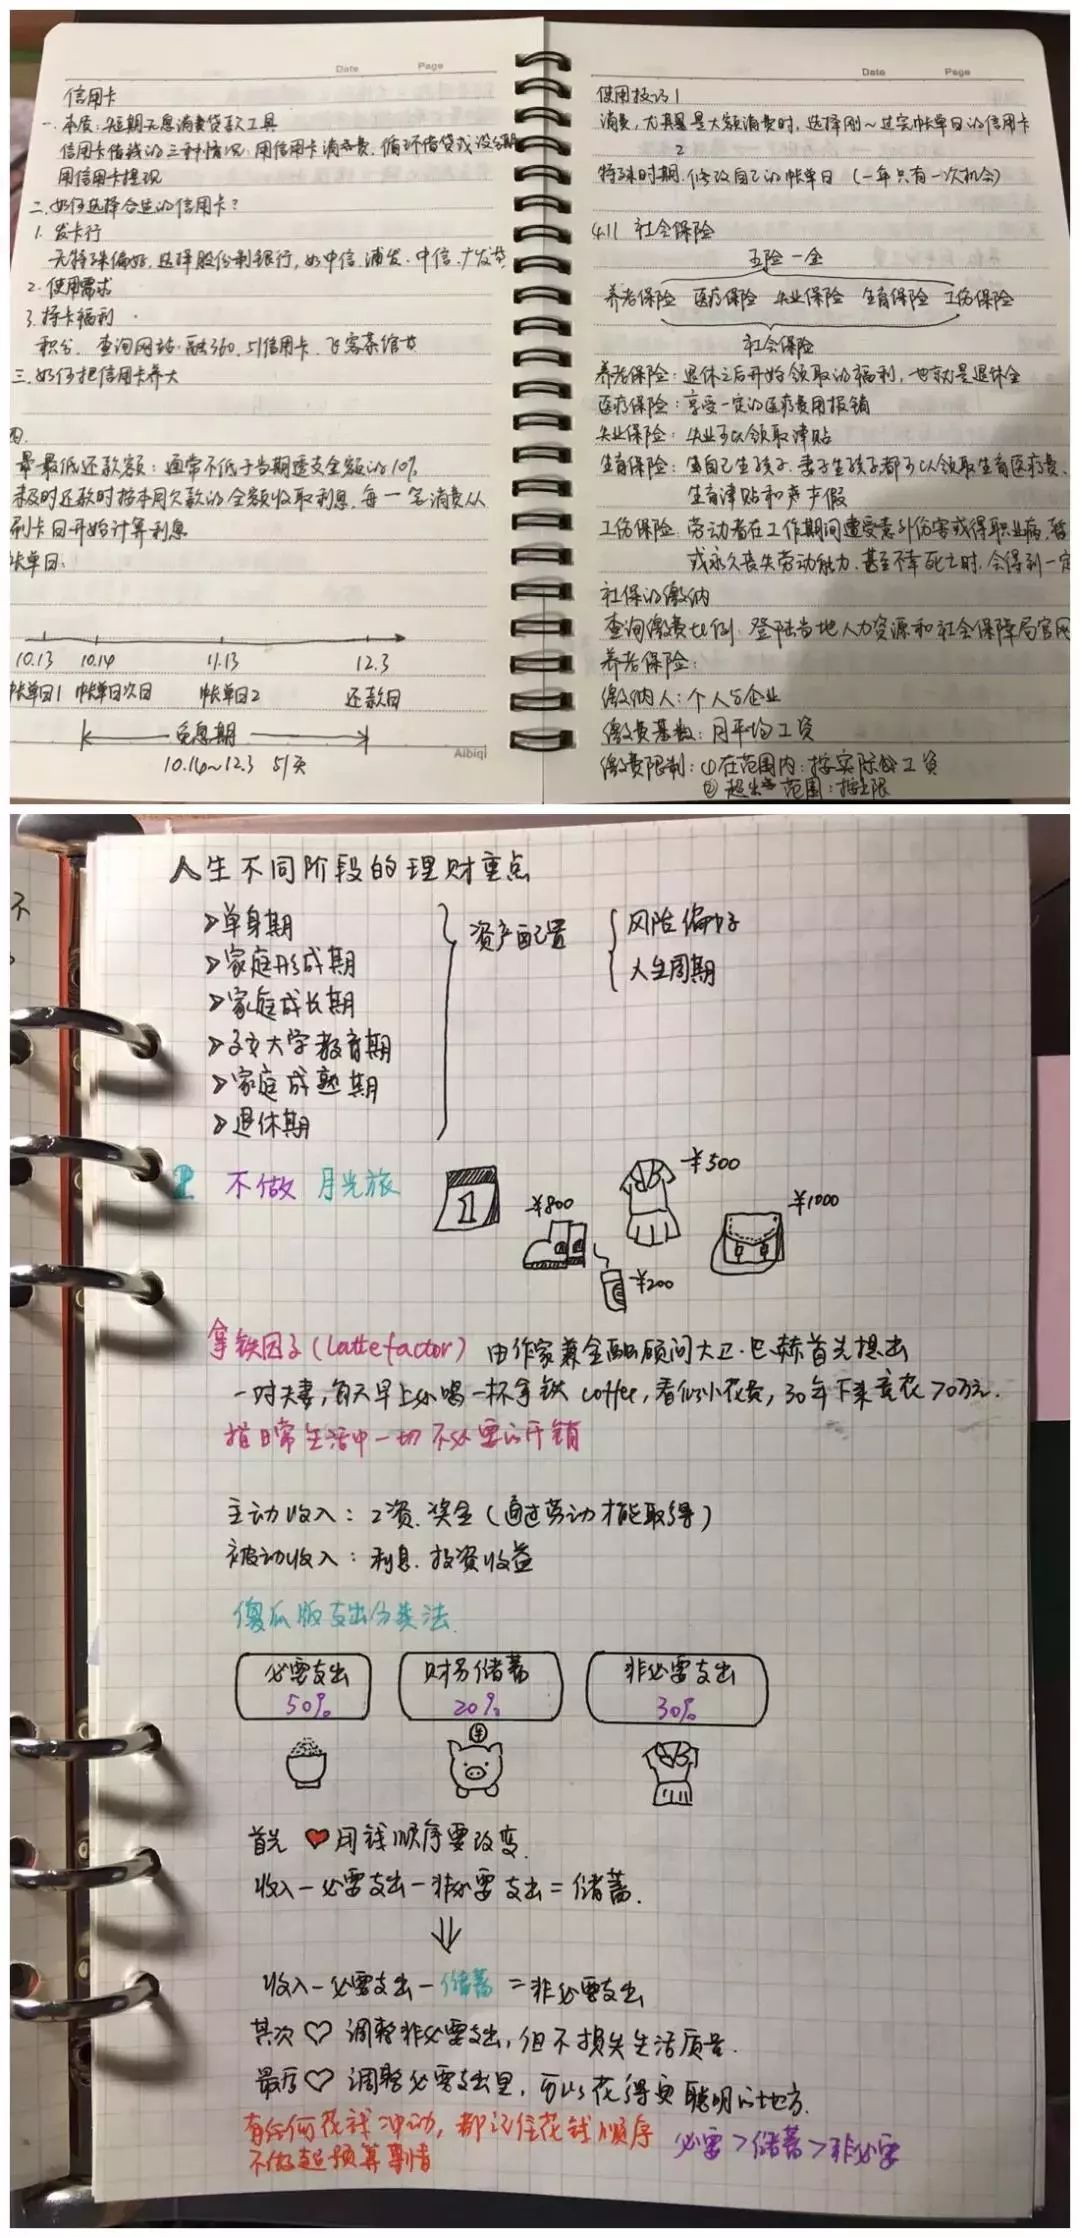 Date Page
信用卡
一. 本质:短期无息消费贷款工具
信用卡借钱的三种情况:用信用卡消费,循环借贷或没分期
用信用卡提现
二. 如何选择合适的信用卡?
1. 发卡行
无特殊偏好,选择股份制银行,如中信、浦发、中信、广发等
2. 使用需求
3. 持卡福利
积分. 查询网站:融360,51信用卡,飞客茶馆
三. 如何把信用卡养大
四.
最低还款额:通常不低于当期透支金额的10%
还款时按本月欠款的全额收取利息,每一笔消费从
刷卡日开始计算利息
帐单日:
10.13 10.14 11.13 12.3
帐单日1 帐单日次日 帐单日2 还款日
免息期
10.14~12.3 51天
Aibiqi
Date Page
使用技巧1
消费,尤其是大额消费时,选择刚~过完帐单日的信用卡
2
特殊时期,修改自己的帐单日 (一年只有一次机会)
4.11 社会保险
五险一金
养老保险 医疗保险 失业保险 生育保险 工伤保险
社会保险
养老保险:退休之后开始领取的福利,也就是退休金
医疗保险:享受一定的医疗费用报销
失业保险:失业可以领取津贴
生育保险:当自己生孩子,妻子生孩子都可以领取生育医疗费、
生育津贴和产假
工伤保险:劳动者在工作期间遭受意外伤害或得职业病,暂
或永久丧失劳动能力,甚至不幸死亡时,会得到一定
社保的缴纳
查询缴费比例:登陆当地人力资源和社会保障局官网
养老保险:
缴纳人:个人与企业
缴费基数:月平均工资
缴费限制:①在范围内:按实际的工资
②超出范围:按上限
不
人生不同阶段的理财重点
>单身期
>家庭形成期
>家庭成长期
>子女大学教育期
>家庭成熟期
>退休期
资产配置
风险偏好
人生周期
不做 月光族
1
¥800
¥500
¥1000
¥200
拿铁因子(Latte factor) 由作家兼金融顾问大卫·巴赫首先提出
一对夫妻,每天早上必喝一杯拿铁 coffee,看似小花费,30年下来竟花70万元.
指日常生活中一切不必要的开销
主动收入:工资.奖金(通过劳动才能取得)
被动收入:利息.投资收益
傻瓜版支出分类法.
必要支出 财务储蓄 非必要支出
50% 20% 30%
首先 ♥ 用钱顺序要改变.
收入-必要支出-非必要支出=储蓄.
收入-必要支出-储蓄=非必要支出
其次♡ 调整非必要支出,但不损失生活质量.
最后♡ 调整必要支出里,可以花得更聪明的地方.
有任何花钱冲动,都记住花钱顺序 必要>储蓄>非必要
不做超预算事情